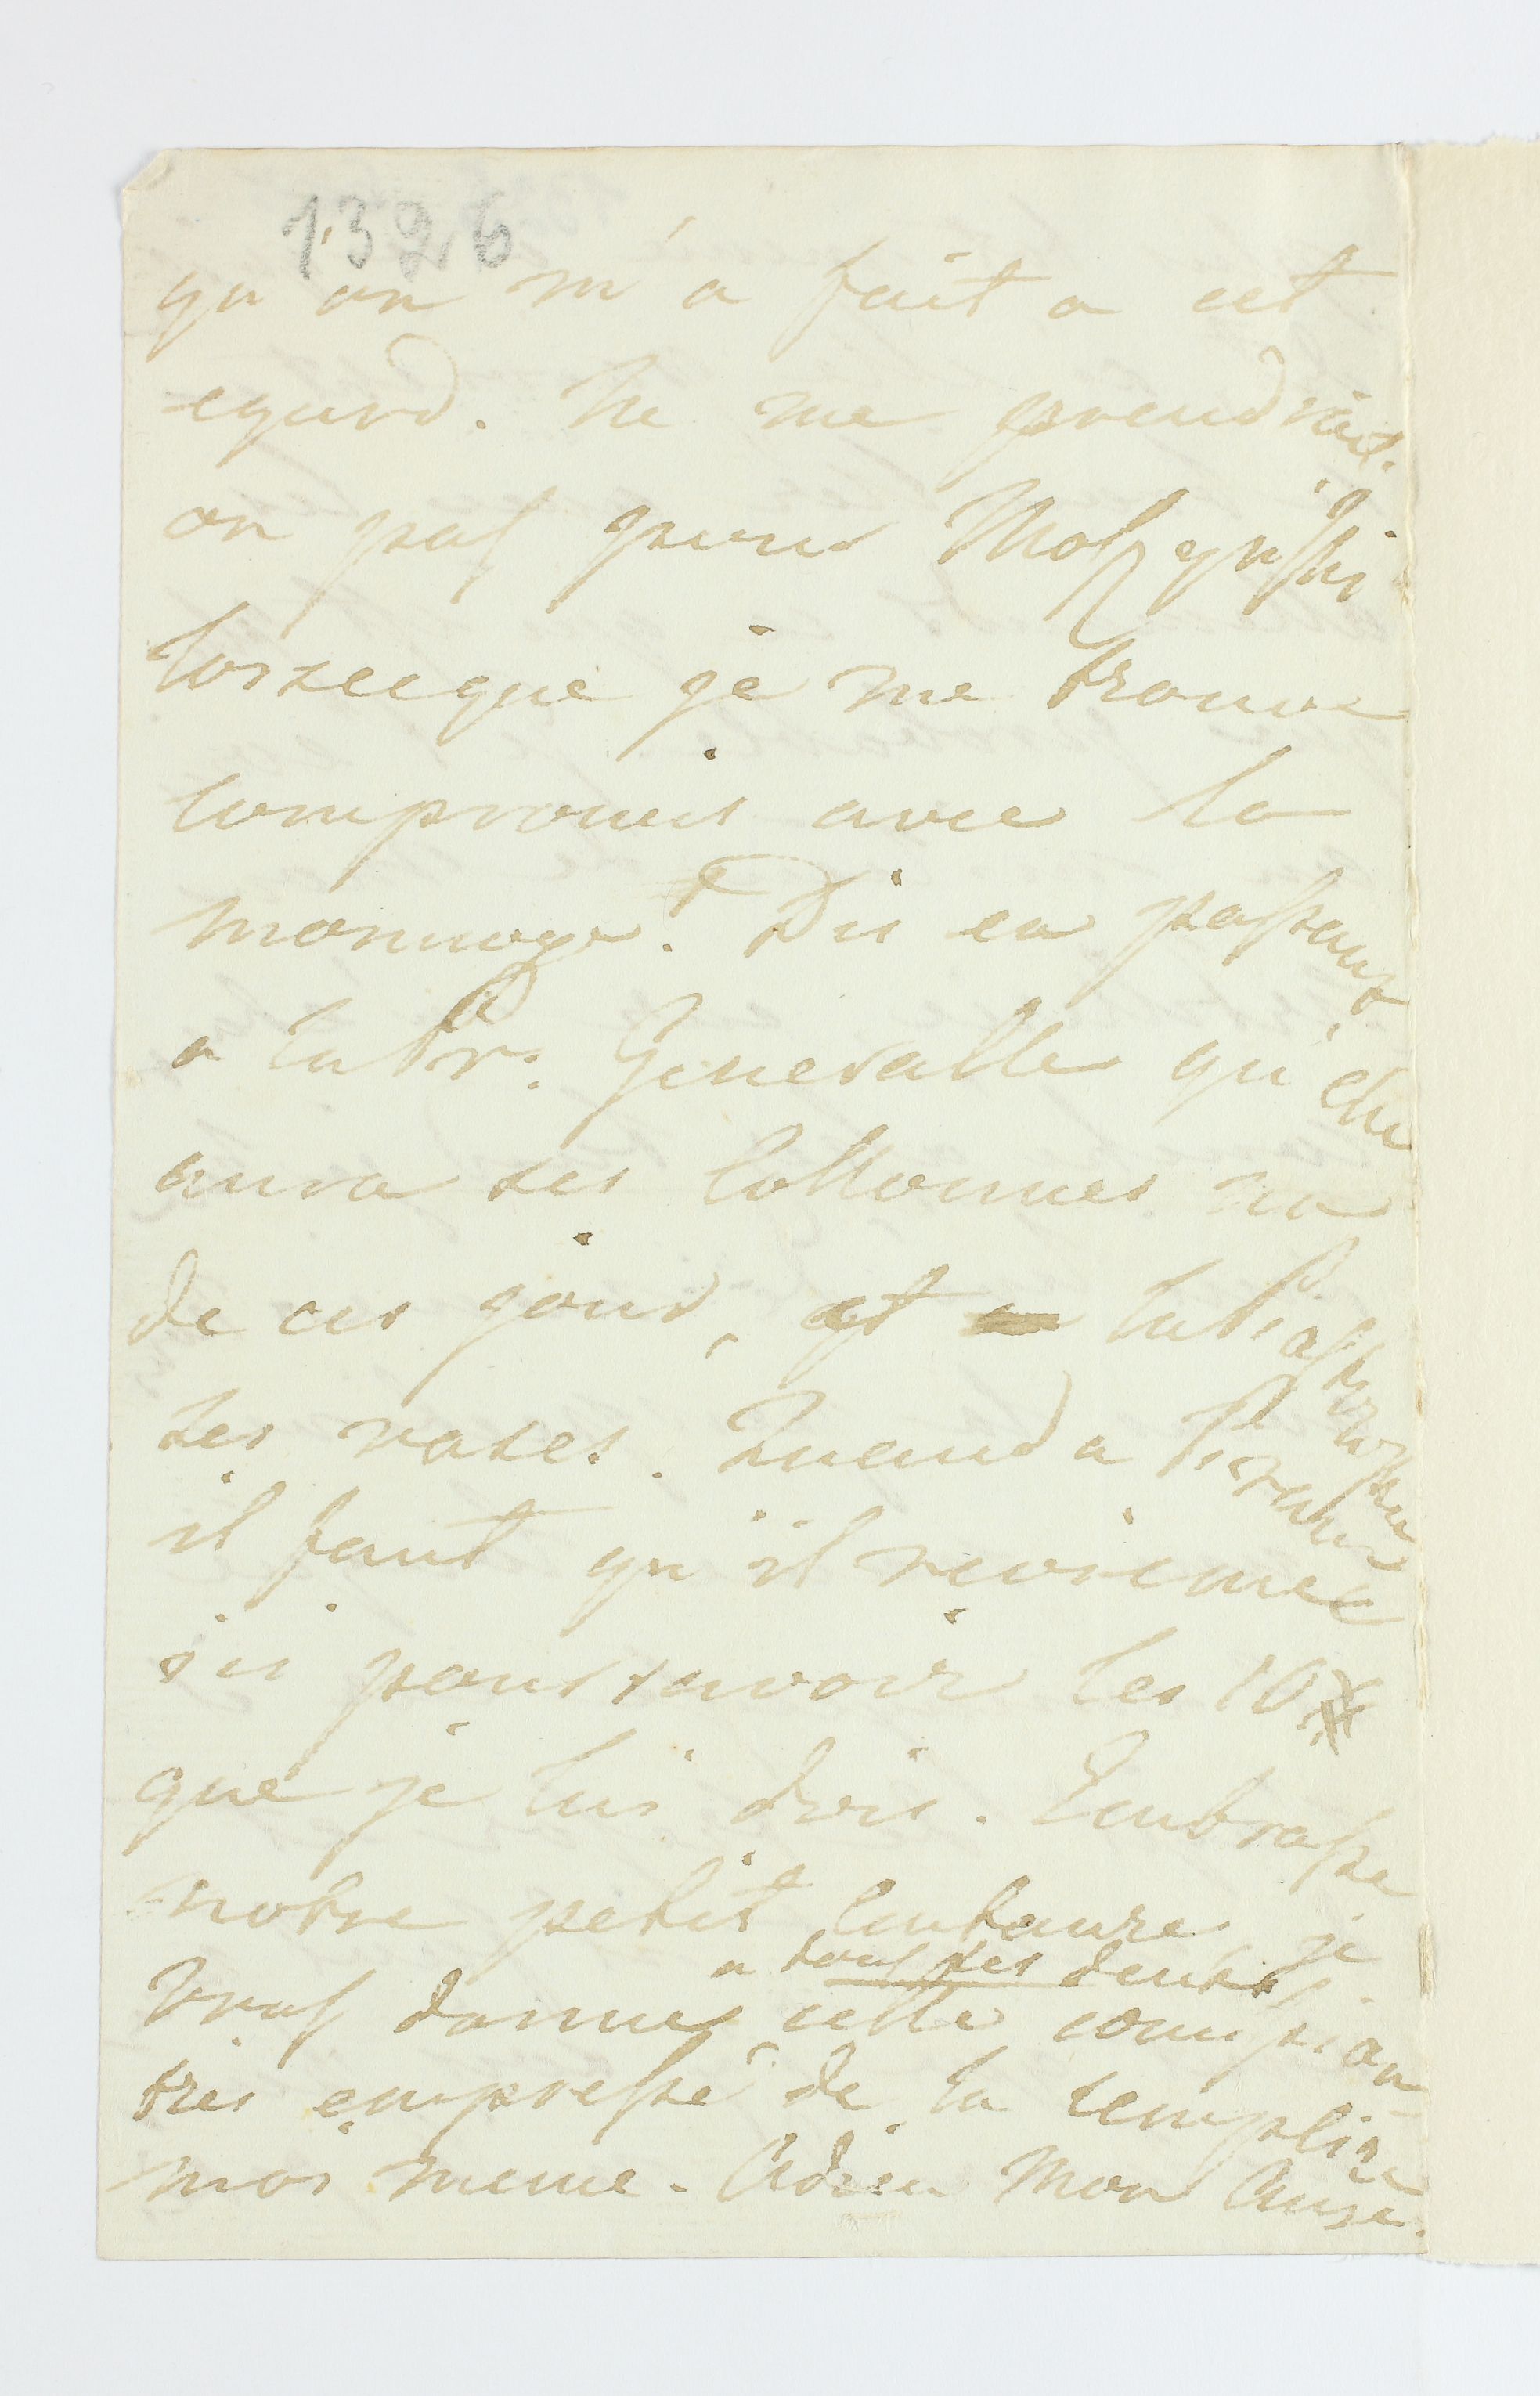 1326
qu'on m'a fait a cet
egard. Ne me prendrait-
on pas pour Moszynski
lorseque je me trouve
compromis avec la
monnoye? Dis en passant
a la Pr. Generalle qu'elle
aura ses Collonnes un
de ces jours, et la
ses vases. Quand a
il faut qu'il revienne
ici pour savoir les 10 #
que je lui dois. Embrasse
notre petit je
a tous les deux
Vous donne cette comission
tres empressé de la remplire
moi meme. Adieu Mon Ange.